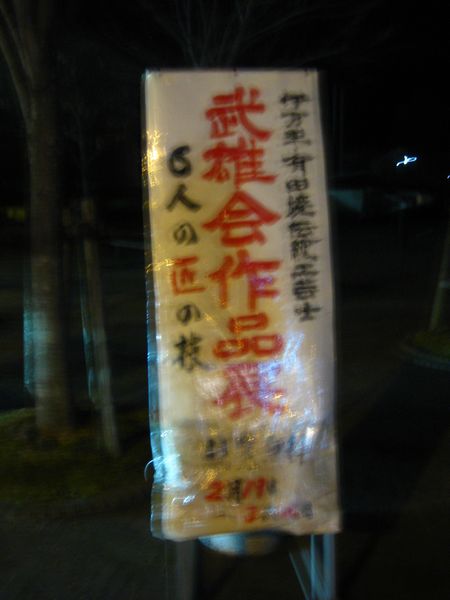 伊万里有田焼伝統工芸士
武雄会作品展
6人の匠の技
2月19